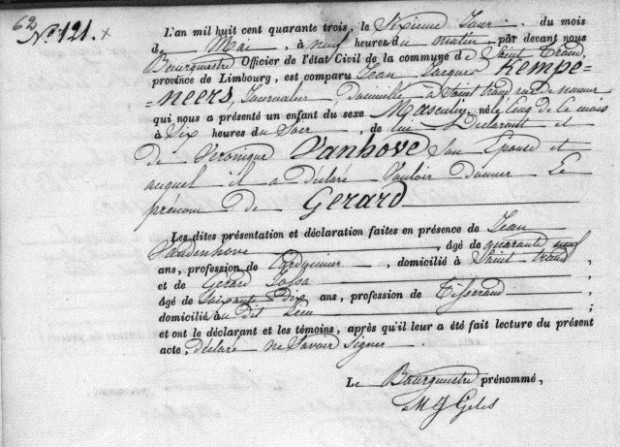 62
N° 121. x
L'an mil huit cent quarante trois, le Sixieme Jour du mois
de Mai, à neuf heures du matin, par devant nous
Bourgmestre Officier de l'état Civil de la commune de Saint Trond,
province de Limbourg, est comparu Jean Jacques Kempe-
neers, Journalier, Domicilié à Saint trond rue de namur
qui nous a présenté un enfant du sexe Masculin, né le Cinq de Ce mois
à Six heures au Soir, de lui Déclarant et
de Véronique Vanhove Son Epouse et
auquel il a déclaré Vouloir Donner le
prénom de Gerard
Les dites présentation et déclaration faites en présence de Jean
Vandenhove, âgé de quarante neuf
ans, profession de , domicilié à Saint trond,
et de Gerard
âgé de Soixante Dix ans, profession de Tisserand;
domicilié au dit Lieu;
et ont le déclarant et les témoins, après qu'il leur a été fait lecture du présent
acte, déclaré ne Savoir Signer.
Le Bourgmestre prénommé,